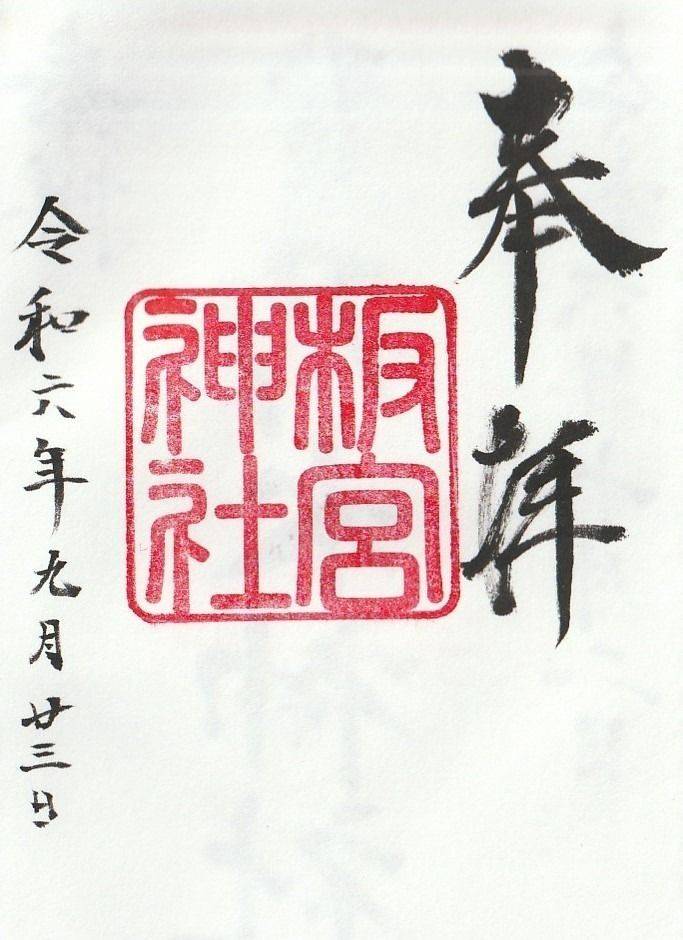 奉拝
板宮
神社
令和六年九月廿三日